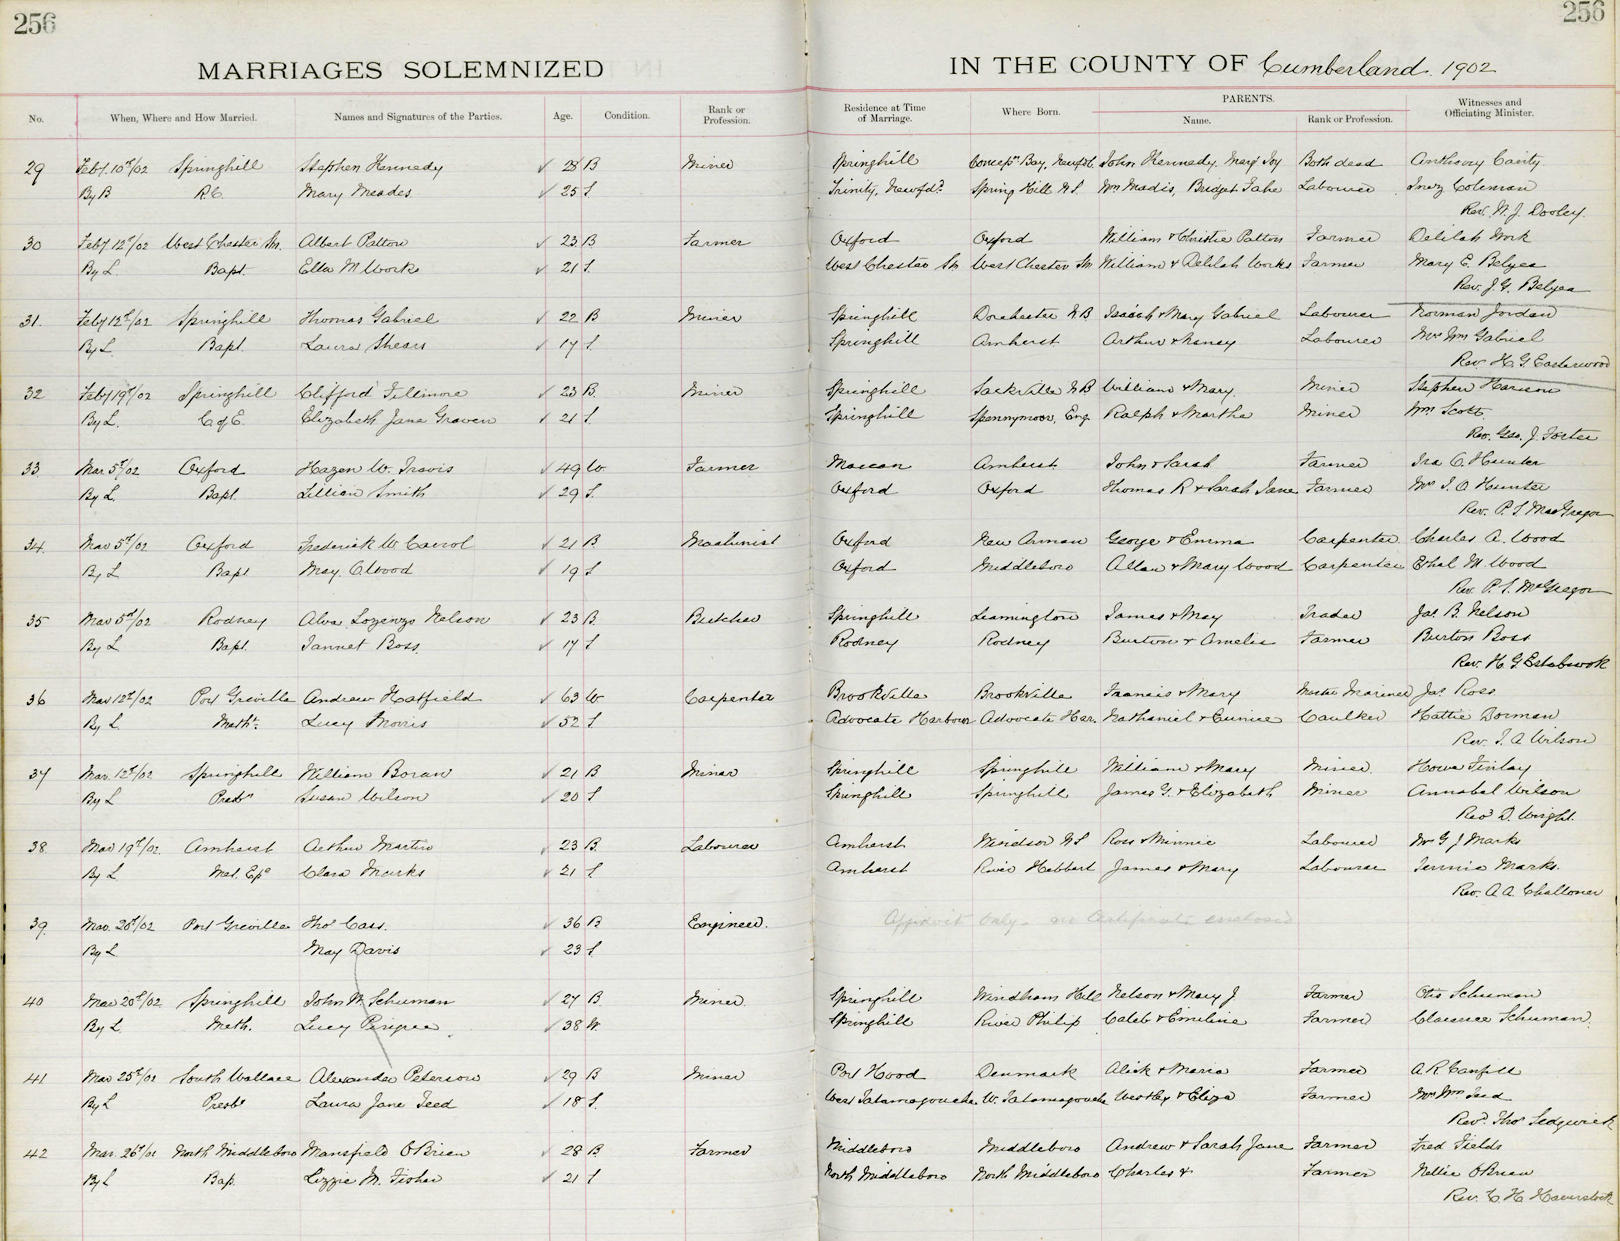 256
256
MARRIAGES SOLEMNIZED
IN THE COUNTY OF Cumberland. 1902
No. When, Where and How Married. Names and Signatures of the Parties. Age. Condition. Rank or Profession. Residence at Time of Marriage. Where Born. PARENTS. Name. Rank or Profession. Witnesses and Officiating Minister.
29 Feby. 10th/02 Springhill Stephen Kennedy 28 B Miner Springhill Concepn Bay, Newfd John Kennedy, Marj Joy Both dead Anthony Carity
By B R.C. Mary Meades 25 S. Trinity, Newfd. Spring Hill N.S. Wm Madis, Bridget Labourer Inez Coleman
Rev. W. J. Dooley.
30 Feby 12th/02 West Chester Sn. Albert Patton 23 B Farmer Oxford Oxford William & Christie Patton Farmer Delilah Work
By L. Bapt. Ella M Works 21 S. West Chester Sn West Chester Sn William & Delilah Works Farmer Mary E. Belyea
Rev. J. G. Belyea
31. Feby 12th/02 Springhill Thomas Gabriel 22 B Miner Springhill Dorchester N B Isaiah & Mary Gabriel Labourer Norman Jordan
By L. Bapt. Laura Shears 17 S. Springhill Amherst Arthur & Nancy Labourer Mrs Wm Gabriel
Rev. H. G.
32 Feby 19th/02 Springhill Clifford Fillimore 23 B. Miner Springhill Sackville N B William & Mary. Miner Stephen Harison
By L. C of E. Elizabeth Jane Graven 21 S. Springhill Spennymoor, Eng. Ralph & Martha Miner Wm Scott
Rev. Geo. J. Foster
33 Mar 5th/02 Oxford Hazen W. Travis 49 W. Farmer Maccan Amherst John & Sarah Farmer Ira O. Hunter
By L. Bapt. Lillian Smith 29 S. Oxford Oxford Thomas R & Sarah Jane Farmer Mrs I. O Hunter
Rev. P. S. MacGregor
34. Mar 5th/02 Oxford Frederick W. Carrol 21 B. Machinist Oxford New Annan George & Emma Carpenter Charles A. Wood
By L Bapt May. O Wood 19 S Oxford Middleboro Allan & Mary Wood Carpenter Ethal M. Wood
Rev. P. S. McGregor
35 Mar 5th/02 Rodney Alva Lozenzo Nelson 23 B Butcher Springhill Leamington James & May Trader Jas. B. Nelson
By L Bapt. Jannet Boss. 17 S Rodney Rodney Burton & Amelia Farmer Burton Boss
Rev. H. G. Estabrook
36 Mar 12th/02 Port Greville Andrew Hatfield 63 W. Carpenter Brookville Brookville Francis & Mary Master Mariner Jas. Ross.
By L Metht. Lucy Morris 52 S Advocate Harbour Advocate Har. Nathaniel & Eunice Caulker Hattie Dorman
Rev. J. A Wilson
37 Mar. 12th/02 Springhill William Boran 21 B Miner Springhill Springhill William & Mary Miner. Howe Finlay
By L Presbn Susan Wilson 20 S Springhill Springhill James G. & Elizabeth Miner Annabel Wilson
Revd D. Wright.
38. Mar 19th/02. Amherst Arthur Martin 23 B. Labourer Amherst Windsor N S Ross & Minnie Labourer Mrs G J Marks
By L Met. Ep. Clara Marks 21 S Amherst River Hebbert James & Mary Labourer Jennie Marks.
Rev. A A Challoner
39. Mar. 20th/02 Port Greville Thos Cass. 36 B Engineer. Affidavit only - no Certificate enclosed
By L May Davis 23 S.
40 Mar 20th/02 Springhill John W. Schuman 27 B. Miner. Springhill Windham Hill Nelson & Mary J. Farmer Otis Schuman
By L. Meth. Lucy 38 W Springhill River Philip Caleb & Emiline Farmer Clarence Schuman.
41 Mar 25th/02 South Wallace Alexander Peterson 29 B Miner Port Hood Denmark Alick & Maria Farmer A R Canfield
By L Presbn Laura Jane Teed 18 S. West Tatamagouche W. Tatamagouche Westley & Eliza Farmer Mrs Wm Teed
Revd Thos Sedgwick
42 Mar. 26th/02 North Middleboro Mansfield O'Brien 28 B. Farmer Middleboro Middleboro Andrew & Sarah Jane Farmer Fred Fields
By L Bap. Lizzie M. Fisher 21 S North Middleboro North Middleboro Charles & Farmer Nellie OBrien
Rev. C. H. Haverstock